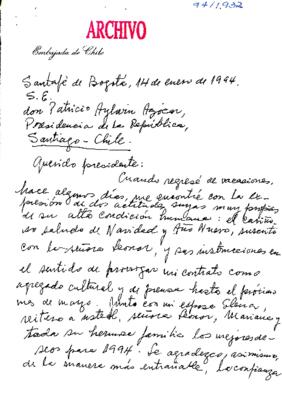 94/1,932
ARCHIVO
Embajada de Chile
Santafé de Bogotá, 14 de enero de 1994.
S.E.
don Patricio Aylwin Azócar,
Presidencia de la República,
Santiago - Chile.
Querido presidente:
Cuando regresé de vacaciones,
hace algunos días, me encontré con la ex-
presión de dos actitudes suyas muy propias
de su alta condición humana: el cariño-
so saludo de Navidad y Año Nuevo, suscrito
con la señora Leonor, y sus instrucciones en
el sentido de prorrogar mi contrato como
agregado cultural y de prensa hasta el próximo
mes de marzo. Junto con mi esposa Elena,
reitero a usted, señora Leonor, Mariana y
toda su hermosa familia los mejores de-
seos para 1994. Le agradezco, asimismo,
de la manera más entrañable, la confianza